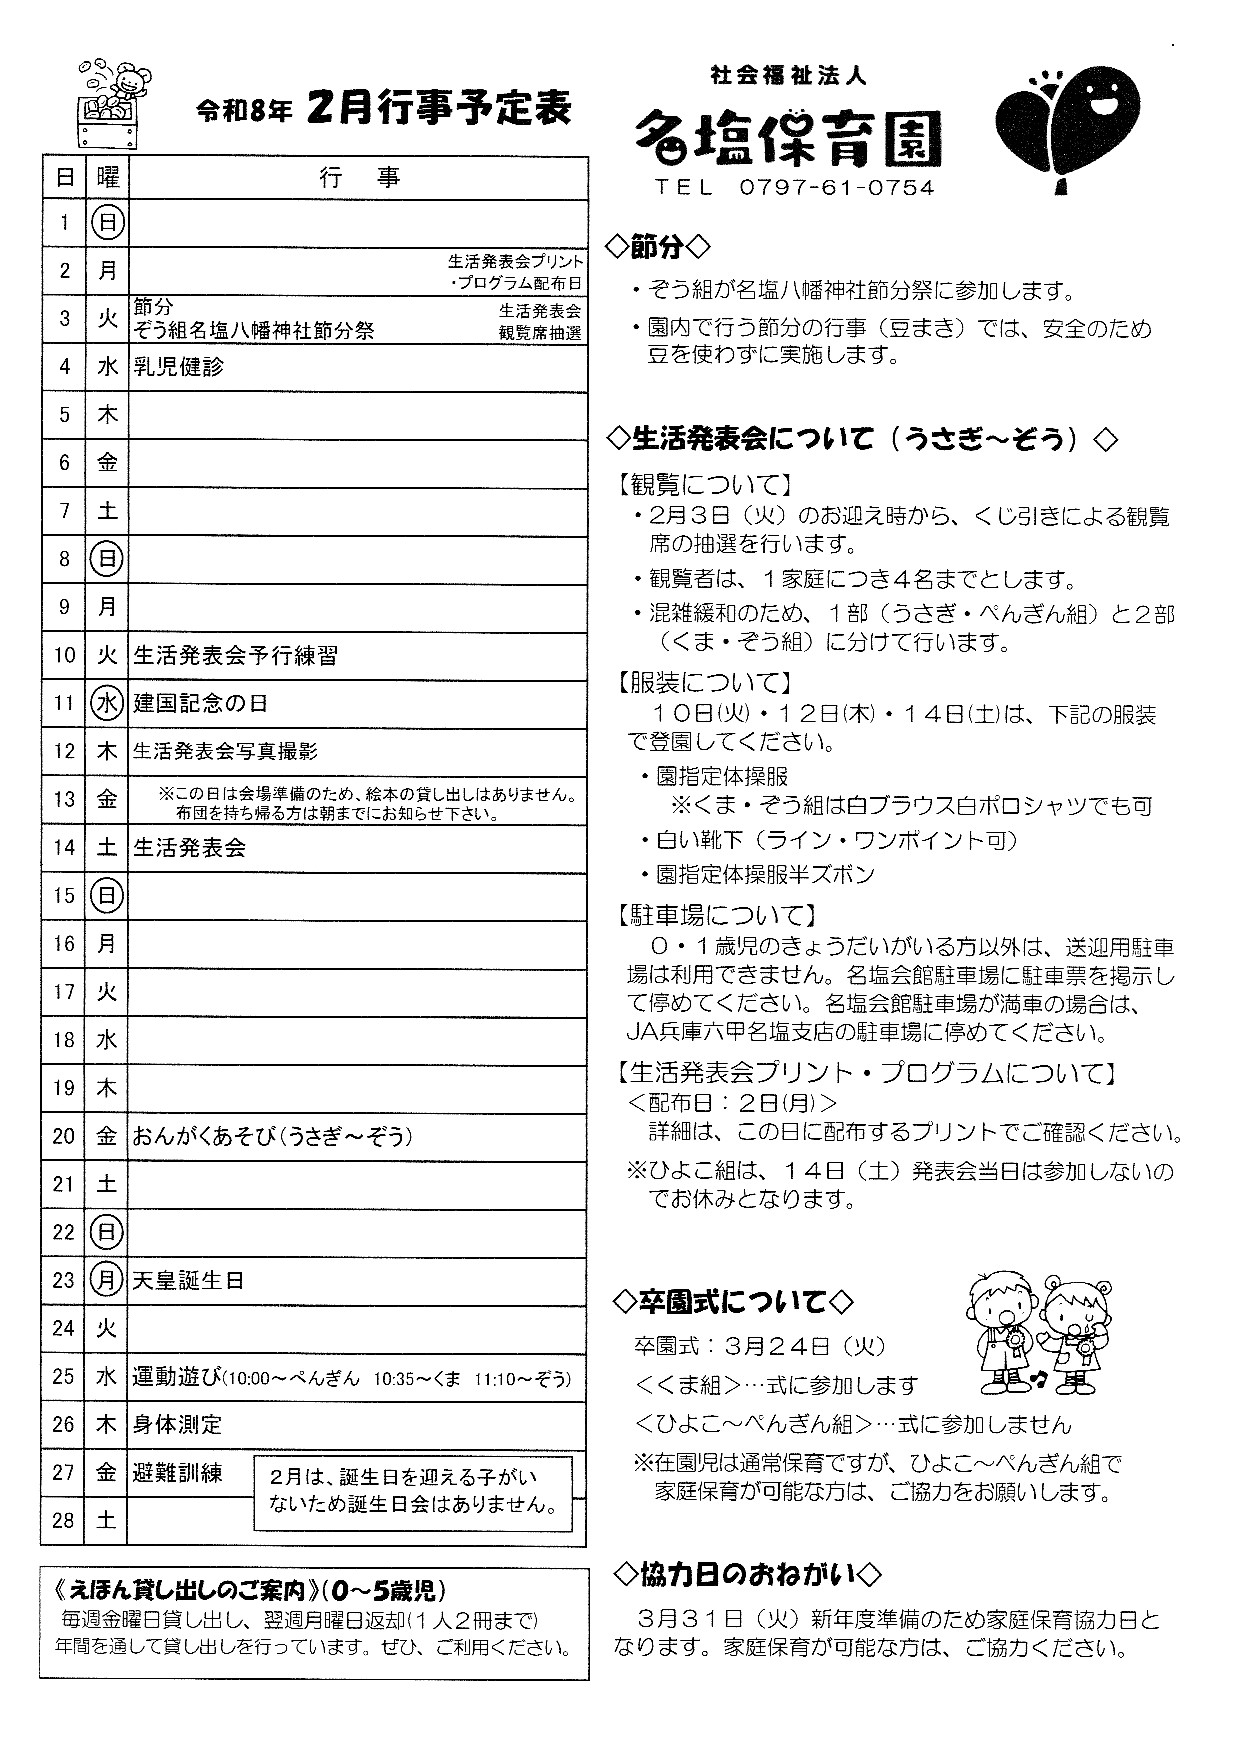 令和8年 2月行事予定表
日 曜 行 事
1 日
2 月 生活発表会プリント
・プログラム配布日
3 火 節分 生活発表会
ぞう組名塩八幡神社節分祭 観覧席抽選
4 水 乳児健診
5 木
6 金
7 土
8 日
9 月
10 火 生活発表会予行練習
11 水 建国記念の日
12 木 生活発表会写真撮影
13 金 ※この日は会場準備のため、絵本の貸し出しはありません。
布団を持ち帰る方は朝までにお知らせ下さい。
14 土 生活発表会
15 日
16 月
17 火
18 水
19 木
20 金 おんがくあそび(うさぎ～ぞう)
21 土
22 日
23 月 天皇誕生日
24 火
25 水 運動遊び(10:00～ぺんぎん 10:35～くま 11:10～ぞう)
26 木 身体測定
27 金 避難訓練
28 土
2月は、誕生日を迎える子がい
ないため誕生日会はありません。
《えほん貸し出しのご案内》(0～5歳児)
毎週金曜日貸し出し、翌週月曜日返却(1人2冊まで)
年間を通して貸し出しを行っています。ぜひ、ご利用ください。
社会福祉法人
名塩保育園
TEL 0797-61-0754
◇節分◇
・ぞう組が名塩八幡神社節分祭に参加します。
・園内で行う節分の行事（豆まき）では、安全のため
豆を使わずに実施します。
◇生活発表会について（うさぎ～ぞう）◇
【観覧について】
・2月3日（火）のお迎え時から、くじ引きによる観覧
席の抽選を行います。
・観覧者は、1家庭につき4名までとします。
・混雑緩和のため、1部（うさぎ・ぺんぎん組）と2部
（くま・ぞう組）に分けて行います。
【服装について】
10日(火)・12日(木)・14日(土)は、下記の服装
で登園してください。
・園指定体操服
※くま・ぞう組は白ブラウス白ポロシャツでも可
・白い靴下（ライン・ワンポイント可）
・園指定体操服半ズボン
【駐車場について】
0・1歳児のきょうだいがいる方以外は、送迎用駐車
場は利用できません。名塩会館駐車場に駐車票を掲示し
て停めてください。名塩会館駐車場が満車の場合は、
JA兵庫六甲名塩支店の駐車場に停めてください。
【生活発表会プリント・プログラムについて】
＜配布日：2日(月)＞
詳細は、この日に配布するプリントでご確認ください。
※ひよこ組は、14日（土）発表会当日は参加しないの
でお休みとなります。
◇卒園式について◇
卒園式：3月24日（火）
＜くま組＞…式に参加します
＜ひよこ～ぺんぎん組＞…式に参加しません
※在園児は通常保育ですが、ひよこ～ぺんぎん組で
家庭保育が可能な方は、ご協力をお願いします。
◇協力日のおねがい◇
3月31日（火）新年度準備のため家庭保育協力日と
なります。家庭保育が可能な方は、ご協力ください。